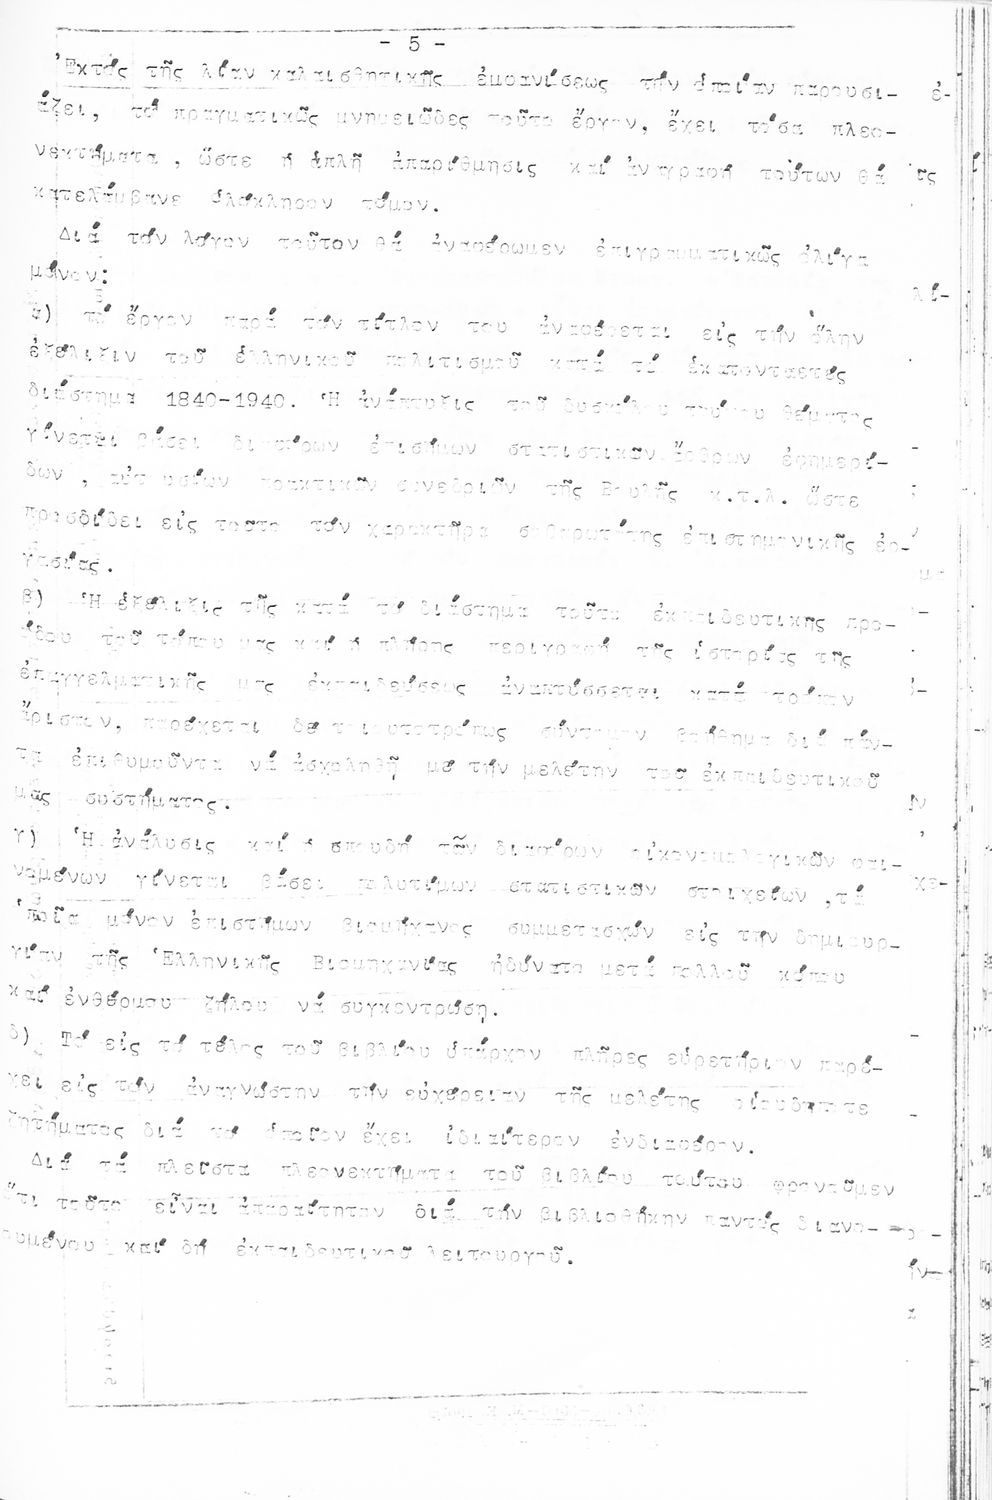 - 5 -
Ἐκτός τῆς λίαν καλαισθητικῆς ἐμφανίσεως τήν ὁποίαν παρουσι-
άζει, τό πραγματικῶς μνημειῶδες τοῦτο ἔργον, ἔχει τόσα πλεο-
νεκτήματα, ὥστε ἡ ἁπλῆ ἀπαρίθμησις καί ἀναγραφή τούτων θά
κατελάμβανε ὁλόκληρον τόμον.
Διά τόν λόγον τοῦτον θά ἀναφέρωμεν ἐπιγραμματικῶς ὀλίγα
μόνον:
α) τό ἔργον παρά τόν τίτλον του ἀναφέρεται εἰς τήν ὅλην
ἐξέλιξιν τοῦ ἑλληνικοῦ πολιτισμοῦ κατά τό ἑκατονταετές
διάστημα 1840-1940. Ἡ ἀνάπτυξις τοῦ δυσκόλου τούτου θέματος
γίνεται βάσει διαφόρων ἐπισήμων στατιστικῶν ἄρθρων ἐφημερί-
δων, πρακτικῶν συνεδριῶν τῆς Βουλῆς κ.τ.λ. ὥστε
προσδίδει εἰς τοῦτο τόν χαρακτῆρα σοβαρωτάτης ἐπιστημονικῆς ἐρ-
γασίας.
β) Ἡ ἐξέλιξις τῆς κατά τό διάστημα τοῦτο ἐκπαιδευτικῆς προ-
όδου τοῦ τόπου μας καί ἡ πλήρης περιγραφή τῆς ἱστορίας τῆς
ἐπαγγελματικῆς μας ἐκπαιδεύσεως ἀναπτύσσεται κατά τρόπον
ἄριστον, παρέχεται δέ τοιουτοτρόπως σύντομον βοήθημα διά πάν-
τα ἐπιθυμοῦντα νά ἀσχοληθῇ μέ τήν μελέτην τοῦ ἐκπαιδευτικοῦ
μας συστήματος.
γ) Ἡ ἀνάλυσις καί ἡ σπουδή τῶν διαφόρων οἰκονομολογικῶν φαι-
νομένων γίνεται βάσει πολυτίμων στατιστικῶν στοιχείων, τά
ὁποῖα μόνον ἐπιστήμων βιομήχανος συμμετασχών εἰς τήν δημιουρ-
γίαν τῆς Ἑλληνικῆς Βιομηχανίας ἠδύνατο μετά πολλοῦ κόπου
καί ἐνθέρμου ζήλου νά συγκεντρώσῃ.
δ) Τό εἰς τό τέλος τοῦ βιβλίου ὑπάρχον πλῆρες εὑρετήριον παρέ-
χει εἰς τόν ἀναγνώστην τήν εὐχέρειαν τῆς μελέτης οἱουδήποτε
ζητήματος διά τό ὁποῖον ἔχει ἰδιαίτερον ἐνδιαφέρον.
Διά τά πλεῖστα πλεονεκτήματα τοῦ βιβλίου τούτου φρονοῦμεν
ὅτι τοῦτο εἶναι ἀπαραίτητον διά τήν βιβλιοθήκην παντός διανο-
ουμένου καί δή ἐκπαιδευτικοῦ λειτουργοῦ.